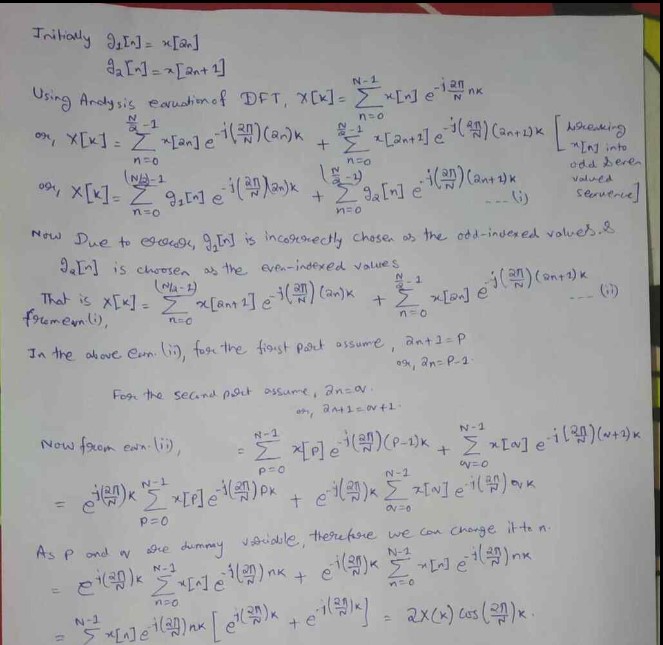 Initially g₁[n] = x[2n]
g₂[n] = x[2n+1]
Using Analysis equation of DFT, X[k] = Σ_{n=0}^{N-1} x[n] e^{-j(2π/N)nk}
or, X[k] = Σ_{n=0}^{N/2-1} x[2n] e^{-j(2π/N)(2n)k} + Σ_{n=0}^{N/2-1} x[2n+1] e^{-j(2π/N)(2n+1)k} [breaking x[n] into odd & even valued sequence]
or, X[k] = Σ_{n=0}^{(N/2)-1} g₁[n] e^{-j(2π/N)(2n)k} + Σ_{n=0}^{(N/2-1)} g₂[n] e^{-j(2π/N)(2n+1)k} ---- (i)
Now Due to error, g₁[n] is incorrectly chosen as the odd-indexed values &
g₂[n] is choosen as the even-indexed values
That is X[k] = Σ_{n=0}^{(N/2-1)} x[2n+1] e^{-j(2π/N)(2n)k} + Σ_{n=0}^{N/2-1} x[2n] e^{-j(2π/N)(2n+1)k} ---- (ii)
from eqn.(i),
In the above eqn. (ii), for the first part assume, 2n+1 = P
or, 2n = P-1.
For the second part assume, 2n = q.
or, 2n+1 = q+1.
Now from eqn.(ii), = Σ_{P=0}^{N-1} x[P] e^{-j(2π/N)(P-1)k} + Σ_{q=0}^{N-1} x[q] e^{-j(2π/N)(q+1)k}
= e^{j(2π/N)k} Σ_{P=0}^{N-1} x[P] e^{-j(2π/N)Pk} + e^{-j(2π/N)k} Σ_{q=0}^{N-1} x[q] e^{-j(2π/N)qk}
As P and q are dummy variable, therefore we can change it to n.
= e^{j(2π/N)k} Σ_{n=0}^{N-1} x[n] e^{-j(2π/N)nk} + e^{-j(2π/N)k} Σ_{n=0}^{N-1} x[n] e^{-j(2π/N)nk}
= Σ_{n=0}^{N-1} x[n] e^{-j(2π/N)nk} [e^{j(2π/N)k} + e^{-j(2π/N)k}] = 2X(k) cos(2π/N)k.